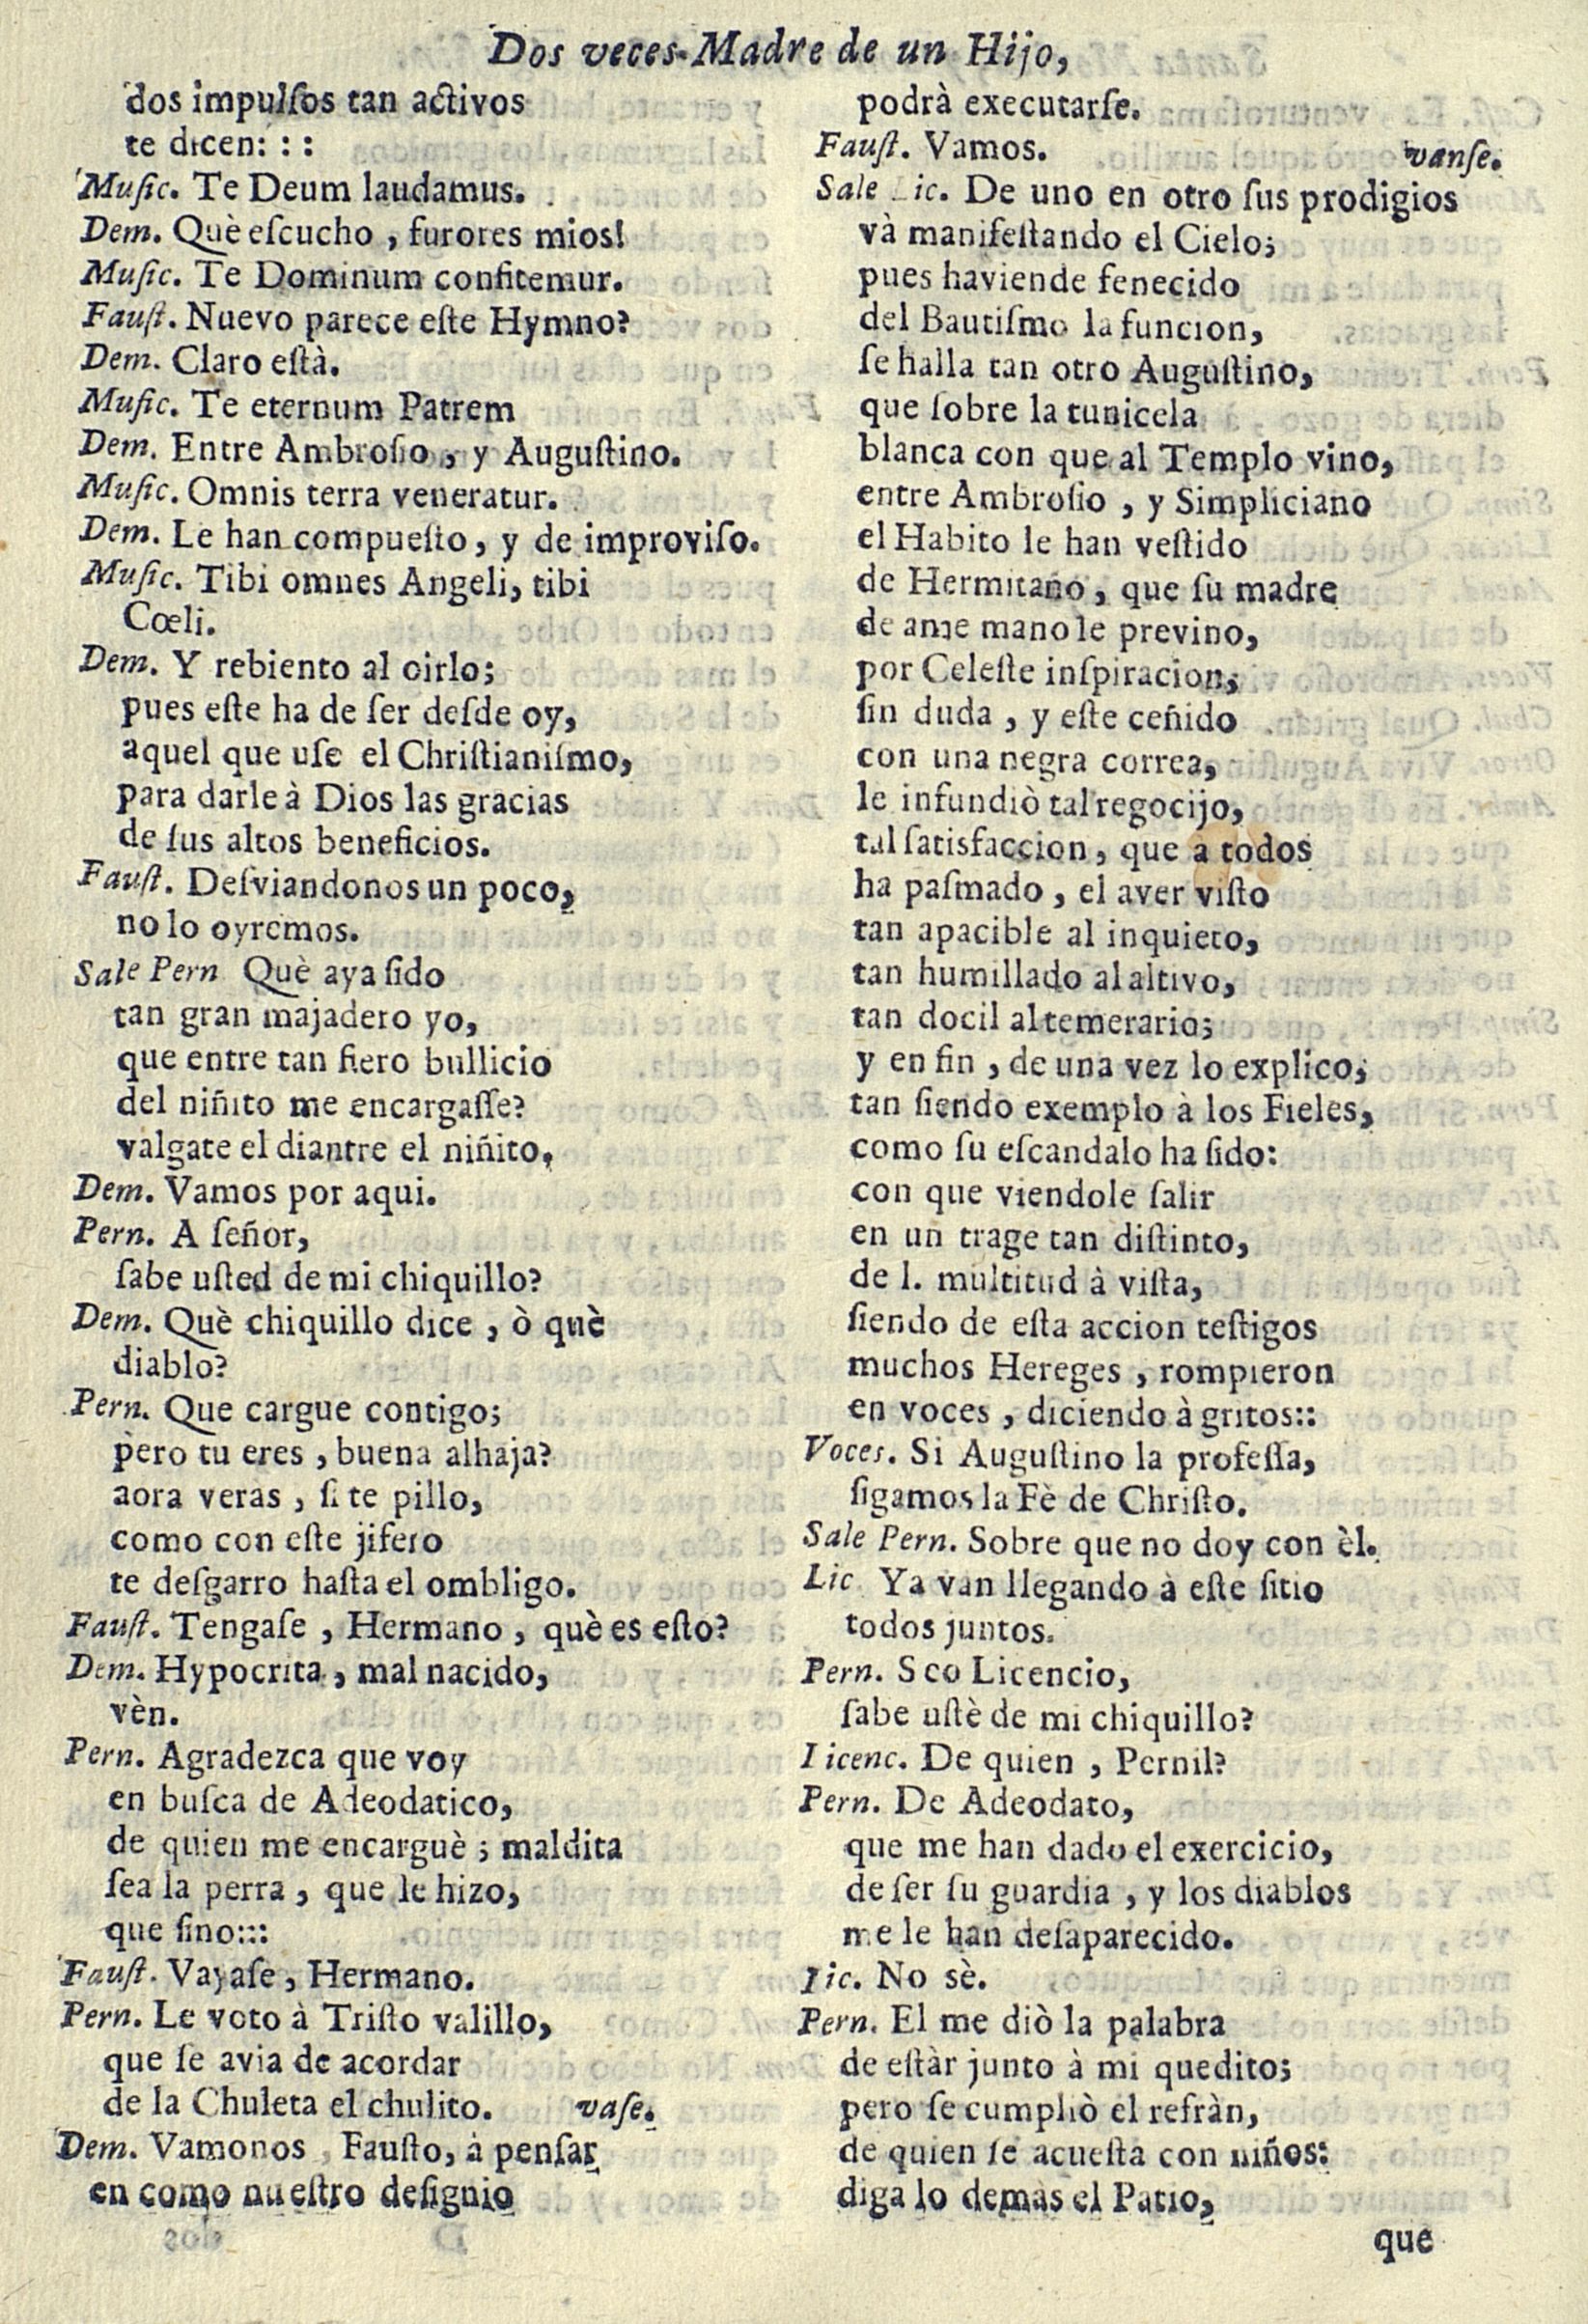 Dos veces Madre de un Hijo,
dos impulsos tan activos
te dicen: : :
Music. Te Deum laudamus.
Dem. Què escucho, furores mios!
Music. Te Dominum confitemur.
Faust. Nuevo parece este Hymno?
Dem. Claro està.
Music. Te eternum Patrem
Dem. Entre Ambrosio, y Augustino.
Music. Omnis terra veneratur.
Dem. Le han compuesto, y de improviso.
Music. Tibi omnes Angeli, tibi
Cœli.
Dem. Y rebiento al oirlo;
pues este ha de ser desde oy,
aquel que use el Christianismo,
para darle à Dios las gracias
de sus altos beneficios.
Faust. Desviandonos un poco,
no lo oyremos.
Sale Pern Què aya sido
tan gran majadero yo,
que entre tan fiero bullicio
del niñito me encargasse?
valgate el diantre el niñito.
Dem. Vamos por aqui.
Pern. A señor,
sabe usted de mi chiquillo?
Dem. Què chiquillo dice, ò què
diablo?
Pern. Que cargue contigo;
pero tu eres, buena alhaja?
aora veras, si te pillo,
como con este jifero
te desgarro hasta el ombligo.
Faust. Tengase, Hermano, què es esto?
Dem. Hypocrita, mal nacido,
vèn.
Pern. Agradezca que voy
en busca de Adeodatico,
de quien me encarguè; maldita
sea la perra, que le hizo,
que sino:::
Faust. Vayase, Hermano.
Pern. Le voto à Tristo valillo,
que se avia de acordar
de la Chuleta el chulito. vase.
Dem. Vamonos, Fausto, à pensar
en como nuestro designio
podrà executarse.
Faust. Vamos. vanse.
Sale Lic. De uno en otro sus prodigios
và manifestando el Cielo;
pues haviende fenecido
del Bautismo la funcion,
se halla tan otro Augustino,
que sobre la tunicela
blanca con que al Templo vino,
entre Ambrosio, y Simpliciano
el Habito le han vestido
de Hermitaño, que su madre
de ame mano le previno,
por Celeste inspiracion,
sin duda, y este ceñido
con una negra correa,
le infundiò tal regocijo,
tal satisfaccion, que a todos
ha pasmado, el aver visto
tan apacible al inquieto,
tan humillado al altivo,
tan docil al temerario;
y en fin, de una vez lo explico,
tan siendo exemplo à los Fieles,
como su escandalo ha sido:
con que viendole salir
en un trage tan distinto,
de l. multitud à vista,
siendo de esta accion testigos
muchos Hereges, rompieron
en voces, diciendo à gritos::
Voces. Si Augustino la professa,
sigamos la Fè de Christo.
Sale Pern. Sobre que no doy con èl.
Lic. Ya van llegando à este sitio
todos juntos.
Pern. Seo Licencio,
sabe ustè de mi chiquillo?
Licenc. De quien, Pernil?
Pern. De Adeodato,
que me han dado el exercicio,
de ser su guardia, y los diablos
me le han desaparecido.
Lic. No sè.
Pern. El me diò la palabra
de estàr junto à mi quedito;
pero se cumpliò el refràn,
de quien se acuesta con niños:
diga lo demàs el Patio,
que